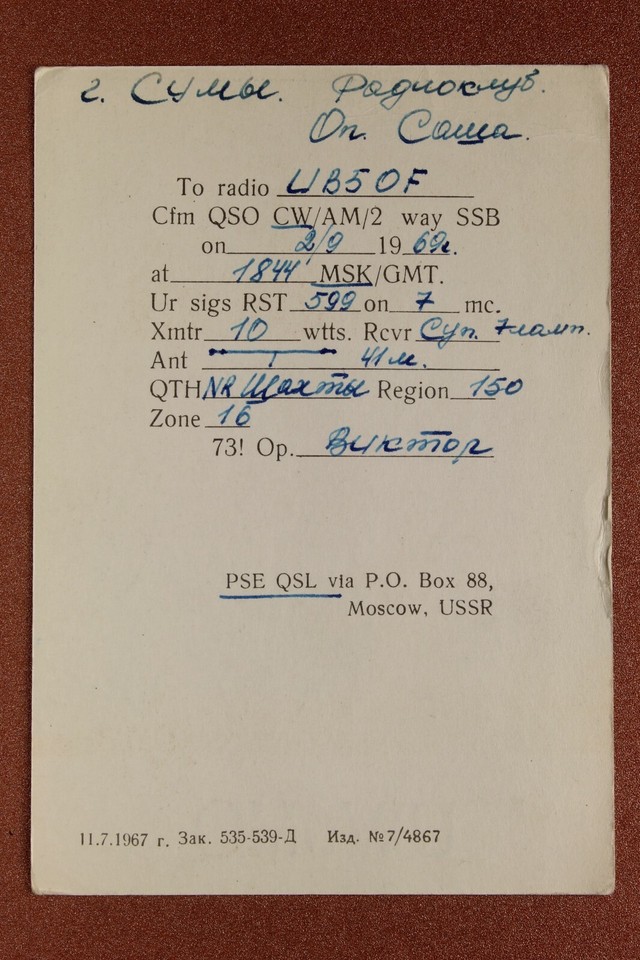 г. Сумы. Радиоклуб.
Оп. Саша.
To radio UB5OF
Cfm QSO CW/AM/2 way SSB
on 2/9 1969г.
at 1844 MSK/GMT.
Ur sigs RST 599 on 7 mc.
Xmtr 10 wtts. Rcvr Суп. 7 ламп.
Ant 41 м.
QTH NR Шахты Region 150
Zone 16
73! Op. Виктор
PSE QSL via P.O. Box 88,
Moscow, USSR
11.7.1967 г. Зак. 535-539-Д Изд. №7/4867